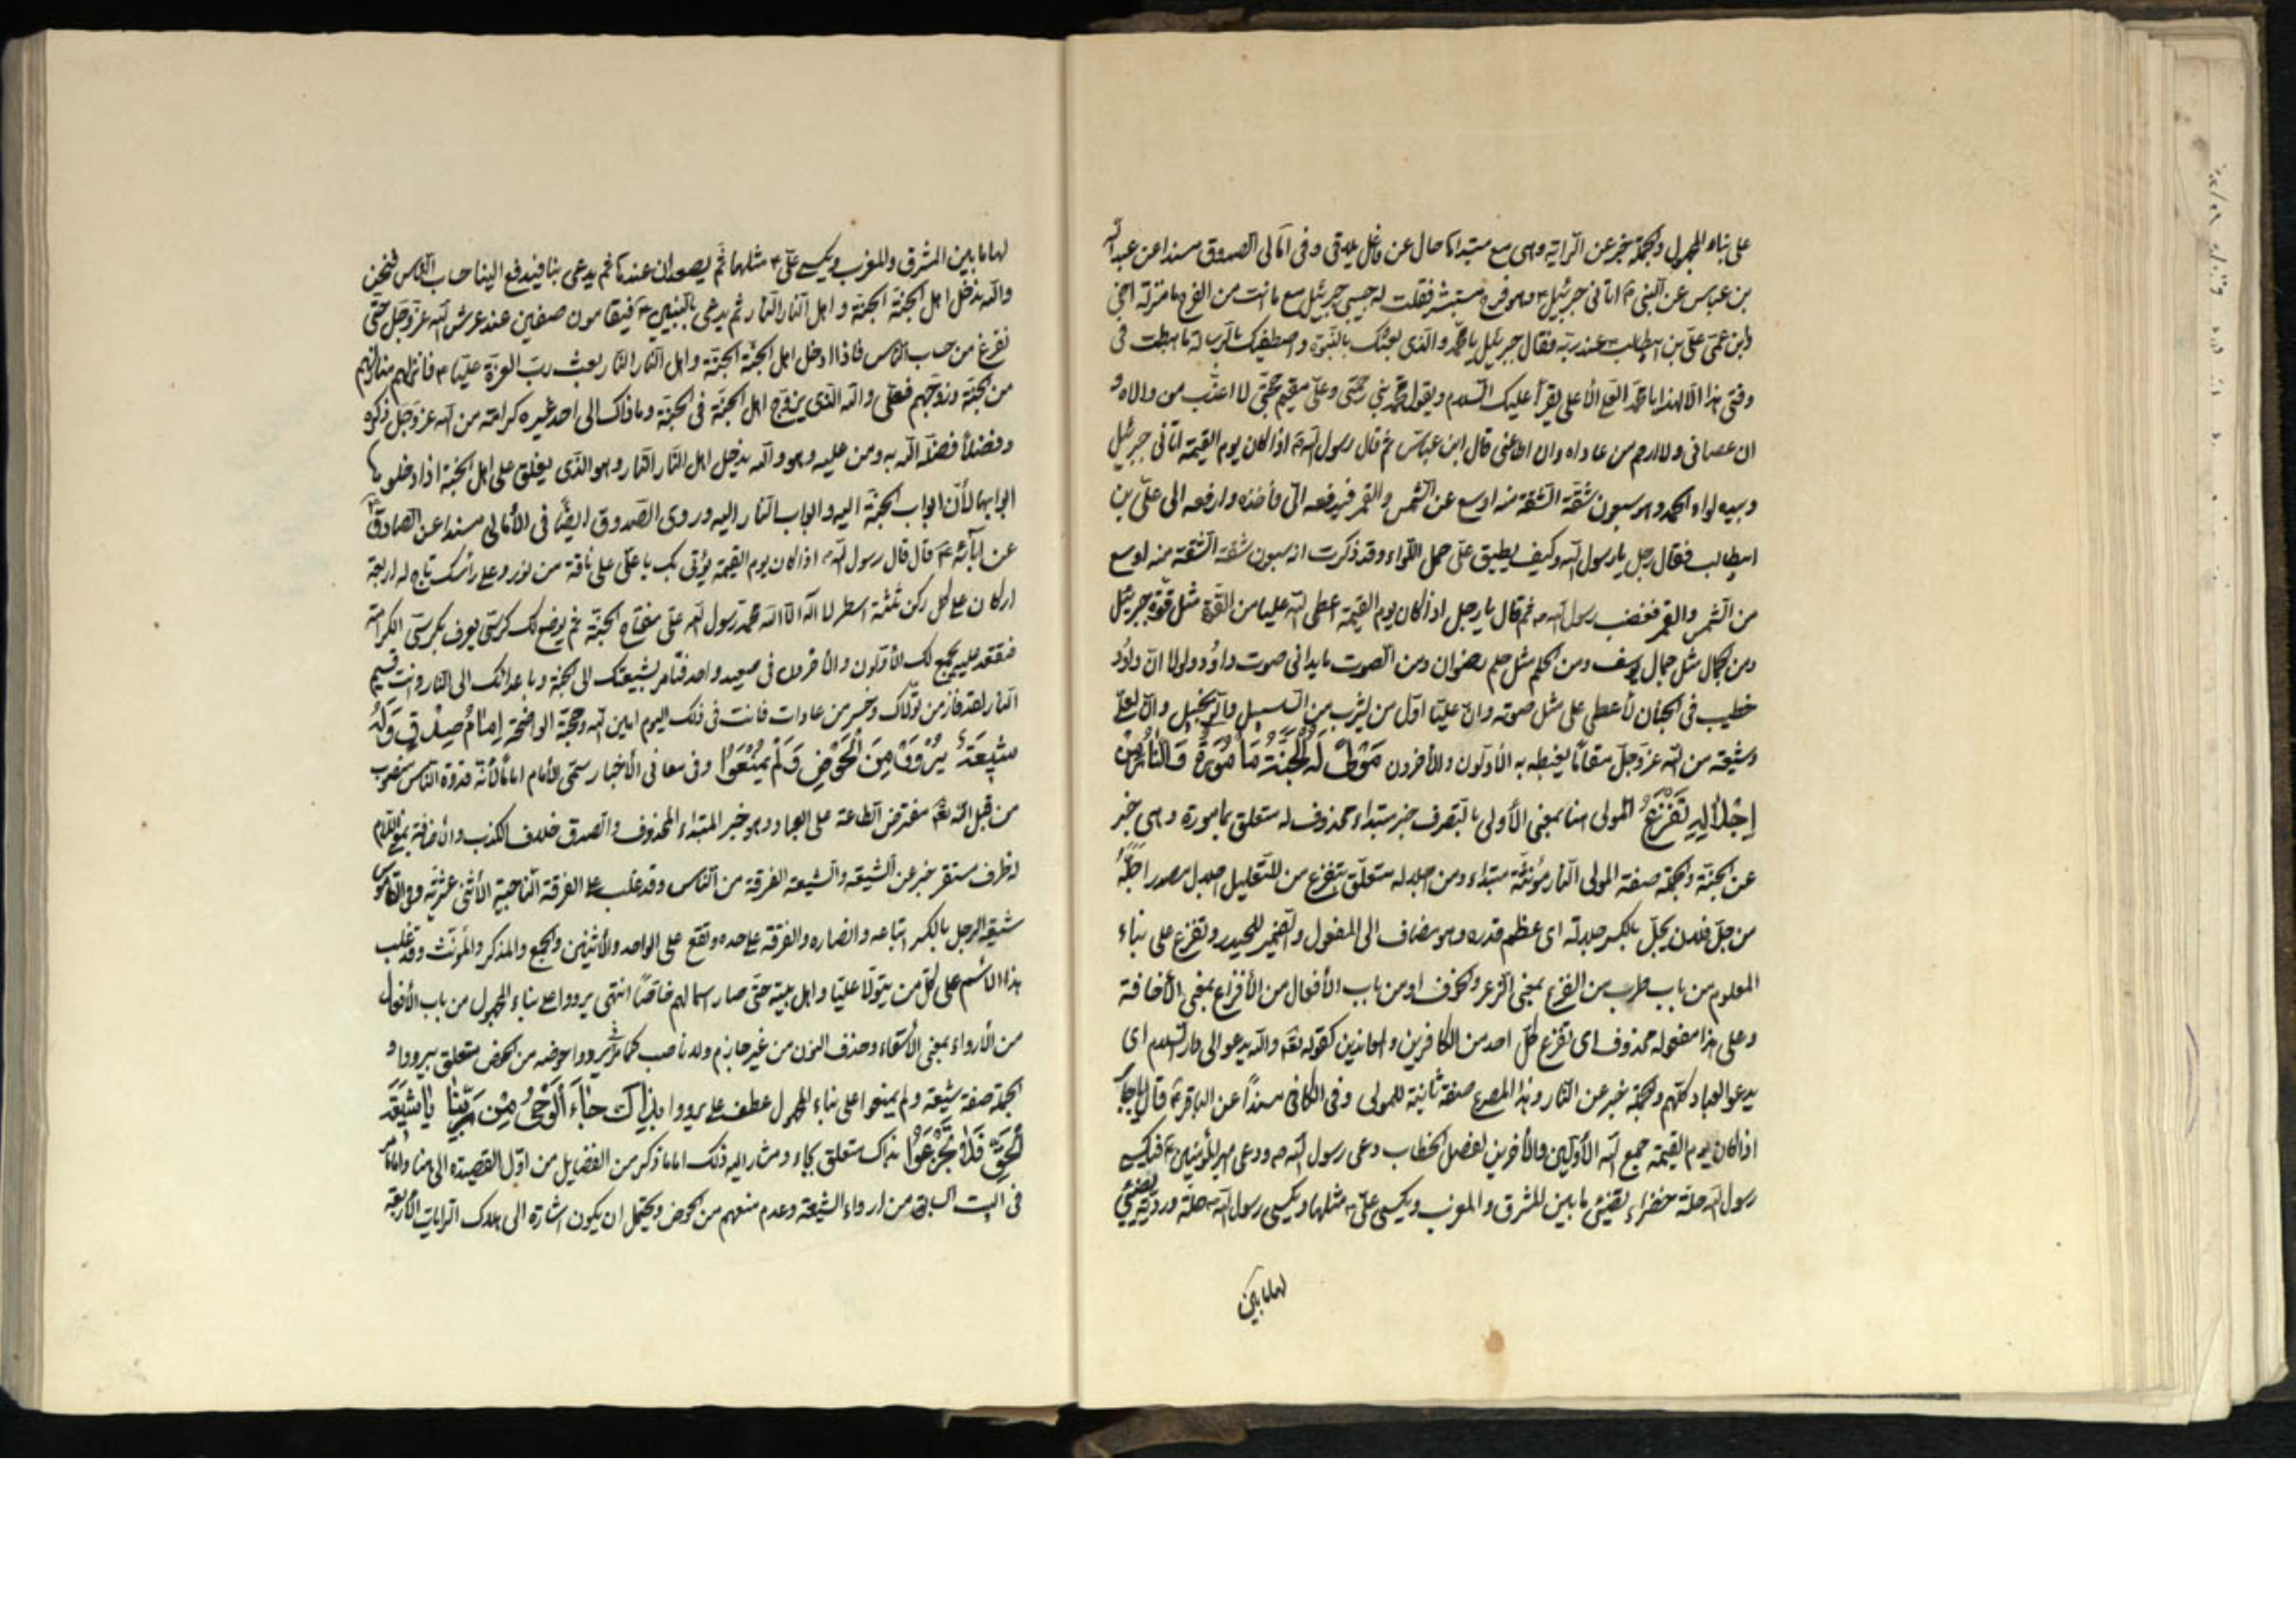 على بناء المجهول والجملة خبر عن الراية وهى مع مبتدائها حال عن فاعل يلاقى وفى امالى الصدوق مسندا عن عبد الله
بن عباس عن النبى ص اتانى جبرئيل ع وهو فرح مستبشر فقلت له حبيبى جبرئيل مع ما انت من الفرح ما منزلة اخى
وابن عمى على بن ابيطالب ع عند ربه فقال جبرئيل يا محمد والذى بعثك بالنبوة واصطفيك بالرسالة ما هبطت فى
وقتى هذا الا لهذا يا محمد العلى الأعلى يقرأ عليك السلم ويقول محمد نبى رحمتى وعلى مقيم حجتى لا اعذب من والاه و
ان عصانى ولا ارحم من عاداه وان اطاعنى قال ابن عباس ثم قال رسول الله ص اذا كان يوم القيمة اتانى جبرئيل
وبيده لواء الحمد وهو سبعون شقة الشقة منه اوسع من الشمس والقمر فيدفعه الى فأخذه وارفعه الى على بن
ابيطالب فقال رجل يا رسول الله وكيف يطيق على حمل اللواء وقد ذكرت انه سبعون شقة الشقة منه اوسع
من الشمس والقمر فغضب رسول الله ص ثم قال يا رجل اذا كان يوم القيمة اعطى الله عليا من القوة مثل قوة جبرئيل
ومن الجمال مثل جمال يوسف ومن الحلم مثل حلم رضوان ومن الصوت ما يدانى صوت داود ولولا ان داود
خطيب فى الجنان لأعطى على مثل صوته وان عليا اول من يشرب من السلسبيل والزنجبيل وان لعلى
وشيعته من الله عز وجل مقاما يغبطه به الأولون والأخرون مَوْلىً لَهُ الْجَنَّةُ مَأْمُورَةٌ وَالنَّارُ مِنْ
إِجْلَالِهِ تَفْزَعُ المولى هنا بمعنى الأولى بالتصرف خبر مبتداء محذوف له متعلق بمأمورة وهى خبر
عن الجنة والجملة صفة المولى النار مؤنثة مبتداء ومن اجلاله متعلق بتفزع من للتعليل اجلال مصدر اجله
من جل فلان يجل بالكسر جلالة اى عظم قدره وهو مضاف الى المفعول والضمير للحيدر وتفزع على بناء
المعلوم من باب ضرب من الفزع بمعنى الذعر والخوف او من باب الأفعال من الأفزاع بمعنى الأخافة
وعلى هذا مفعوله محذوف اى تفزع كل احد من الكافرين والمعاندين كقوله تعالى والله يدعوا الى دار السلام اى
يدعو العباد كلهم والجملة خبر عن النار وهذا المصرع صفة ثانية للمولى وفى الكافى مسندا عن الباقر ع قال يا جابر
اذا كان يوم القيمة جمع الله الأولين والأخرين لفصل الخطاب دعى رسول الله ص ودعى امير المؤمنين ع فيكسى
رسول الله حلة خضراء تضيئ ما بين المشرق والمغرب ويكسى على ع مثلها ويكسى رسول الله ص حلة وردية يضيئ
لها ما بين
لها ما بين المشرق والمغرب ويكسى على ع مثلها ثم يصعدان عندها ثم يدعى بنا فيدفع الينا حساب الناس فنحن
والله ندخل اهل الجنة الجنة واهل النار النار ثم يدعى بالنبيين ع فيقامون صفين عند عرش الله عز وجل حتى
نفرغ من حساب الناس فاذا ادخل اهل الجنة الجنة واهل النار النار بعث رب العزة عليا ع فانزلهم منازلهم
من الجنة وزوجهم فعلى والله الذى يزوج اهل الجنة فى الجنة وما ذاك الى احد غيره كرامة من الله عز وجل ذكره
وفضلا فضله الله به ومن عليه وهو والله يدخل اهل النار النار وهو الذى يغلق على اهل الجنة اذا دخلوها
ابوابها لأن ابواب الجنة اليه وابواب النار اليه وروى الصدوق ايضا فى الأمالى مسندا عن الصادق ع
عن ابآئه ع قال قال رسول الله ص اذا كان يوم القيمة يؤتى بك يا على على ناقة من نور وعلى رأسك تاج له اربعة
اركان على كل ركن ثلثة اسطر لا اله الا الله محمد رسول الله على مفتاح الجنة ثم يوضع لك كرسى يعرف بكرسى الكرامة
فتقعد عليه يجمع لك الأولون والأخرون فى صعيد واحد فتأمر بشيعتك الى الجنة وباعدائك الى النار وانت قسيم
النار لقد فاز من تولاك وخسر من عاداك فانت فى ذلك اليوم امين الله وحجة الواضحة إِمَامُ صِدْقٍ وَلَهُ
شِيعَةٌ يُرْوَوْا مِنَ الْحَوْضِ وَلَمْ يُمْنَعُوا وفى معانى الأخبار سمى الأمام اماما لأنه قدوة الناس منصوب
من قبل الله تعالى مفترض الطاعة على العباد وهو خبر المبتداء المحذوف والصدق خلاف الكذب والأضافة بمعنى اللام
له ظرف مستقر خبر عن الشيعة والشيعة الفرقة من الناس وقد غلب على الفرقة الناجية الأثنى عشرية وفى القاموس
شيعة الرجل بالكسر اتباعه وانصاره والفرقة على حده وتقع على الواحد والأثنين والجمع والمذكر والمؤنث وقد غلب
هذا الأسم على كل من يتولا عليا واهل بيته حتى صار اسما لهم خاصا انتهى يرووا على بناء المجهول من باب الأفعال
من الأرواء بمعنى الأسقاء وحذف النون من غير جازم ولا ناصب كما مر فى يردوا حوضه من الحوض متعلق بيرووا و
الجملة صفة شيعة ولم يمنعوا على بناء المجهول عطف على يرووا بِذَاكَ جَاءَ الْوَحْىُ مِنْ رَبِّنَا يَا شِيعَةَ
الْحَقِّ فَلَا تَجْزَعُوا بذاك متعلق بجاء ومشار اليه ذلك اما ما ذكر من الفضايل من اول القصيدة الى هنا واما ما مر
فى البيت السابق من ارواء الشيعة وعدم منعهم من الحوض ويحتمل ان يكون اشارة الى هلاك الرايات الأربعة